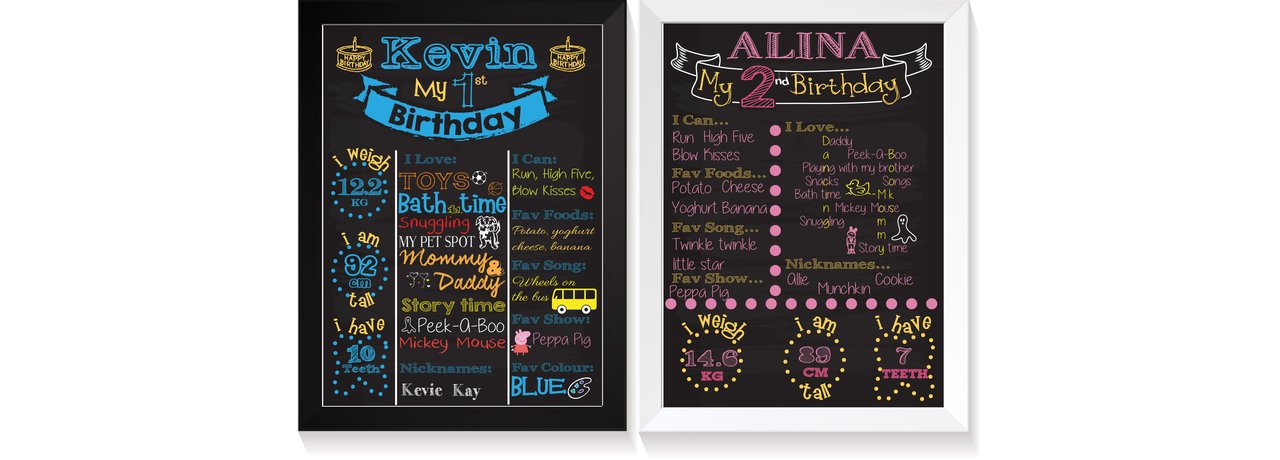 HAPPY
BIRTHDAY
Kevin
HAPPY
BIRTHDAY
My 1st
Birthday
i weigh
12.2
KG
i am
92
cm
tall
i have
10
Teeth
I Love:
TOYS
Bath time
Snuggling
MY PET SPOT
Mommy
&
Daddy
Story time
Peek-A-Boo
Mickey Mouse
Nicknames:
Kevie Kay
I Can:
Run, High Five,
Blow Kisses
Fav Foods:
Potato, yoghurt
cheese, banana
Fav Song:
Wheels on
the bus
Fav Show:
Peppa Pig
Fav Colour:
BLUE
ALINA
My 2nd Birthday
I Can...
Run High Five
Blow Kisses
Fav Foods...
Potato Cheese
Yoghurt Banana
Fav Song...
Twinkle twinkle
little star
Fav Show...
Peppa Pig
I Love...
Daddy
a Peek-A-Boo
Playing with my brother
Snacks Songs
Bath time M k
n Mickey Mouse
Snuggling m
m
Story time
Nicknames...
Allie Cookie
Munchkin
i weigh
14.6
KG
i am
89
CM
tall
i have
7
TEETH